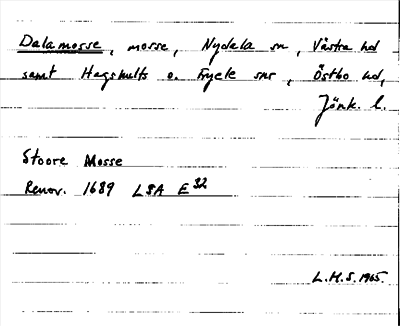 Dalamosse, mosse, Nydala sn, Västra hd
samt Hagshults o. Tryele snr, Östbo hd,
Jönk. l.
Stoore Mosse
Renov. 1689 LSA E 32
L.H.S. 1965.